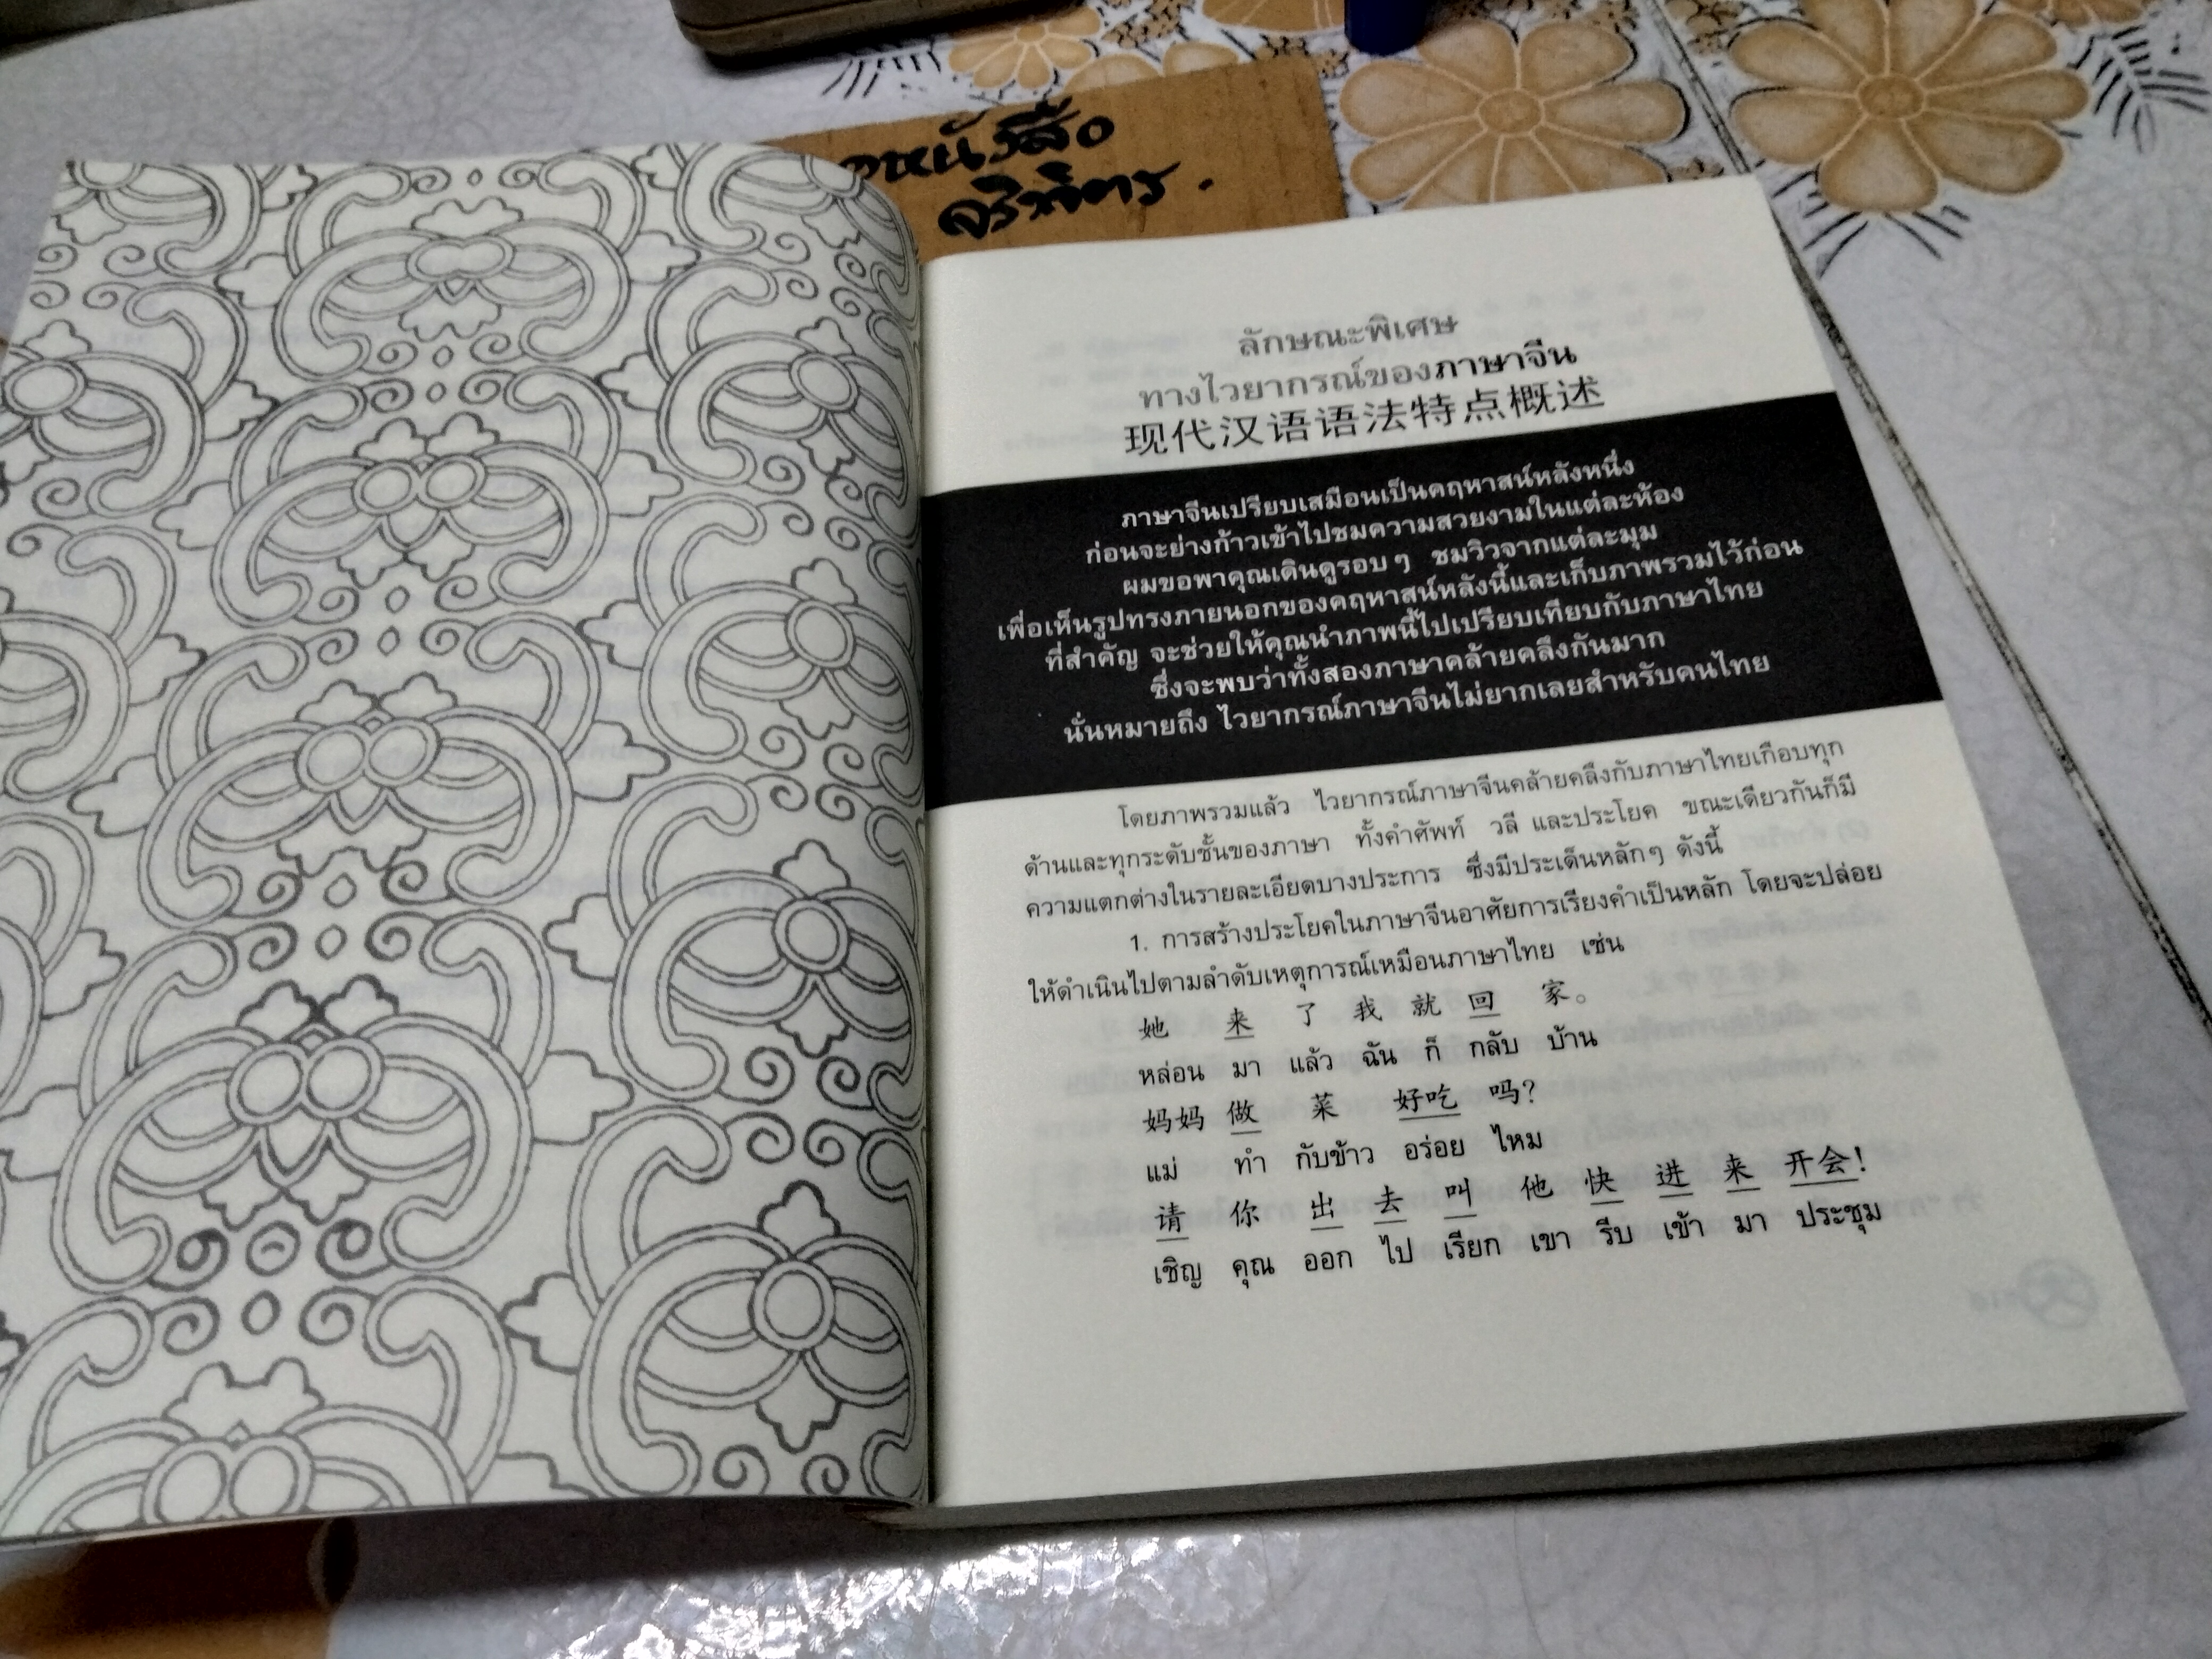 หนังสือ
ลักษณะพิเศษ
ทางไวยากรณ์ของภาษาจีน
现代汉语语法特点概述
ภาษาจีนเปรียบเสมือนเป็นคฤหาสน์หลังหนึ่ง
ก่อนจะย่างก้าวเข้าไปชมความสวยงามในแต่ละห้อง
ผมขอพาคุณเดินดูรอบๆ ชมวิวจากแต่ละมุม
เพื่อเห็นรูปทรงภายนอกของคฤหาสน์หลังนี้และเก็บภาพรวมไว้ก่อน
ที่สำคัญ จะช่วยให้คุณนำภาพนี้ไปเปรียบเทียบกับภาษาไทย
ซึ่งจะพบว่าทั้งสองภาษาคล้ายคลึงกันมาก
นั่นหมายถึง ไวยากรณ์ภาษาจีนไม่ยากเลยสำหรับคนไทย
โดยภาพรวมแล้ว ไวยากรณ์ภาษาจีนคล้ายคลึงกับภาษาไทยเกือบทุก
ด้านและทุกระดับชั้นของภาษา ทั้งคำศัพท์ วลี และประโยค ขณะเดียวกันก็มี
ความแตกต่างในรายละเอียดบางประการ ซึ่งมีประเด็นหลักๆ ดังนี้
1. การสร้างประโยคในภาษาจีนอาศัยการเรียงคำเป็นหลัก โดยจะปล่อย
ให้ดำเนินไปตามลำดับเหตุการณ์เหมือนภาษาไทย เช่น
她 来 了 我 就 回 家。
หล่อน มา แล้ว ฉัน ก็ กลับ บ้าน
妈妈 做 菜 好吃 吗?
แม่ ทำ กับข้าว อร่อย ไหม
请 你 出 去 叫 他 快 进 来 开会!
เชิญ คุณ ออก ไป เรียก เขา รีบ เข้า มา ประชุม